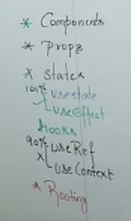 * Components
* Props
* states
100% usestate
useEffect
hooks
90% useRef
useContext
* Rooting